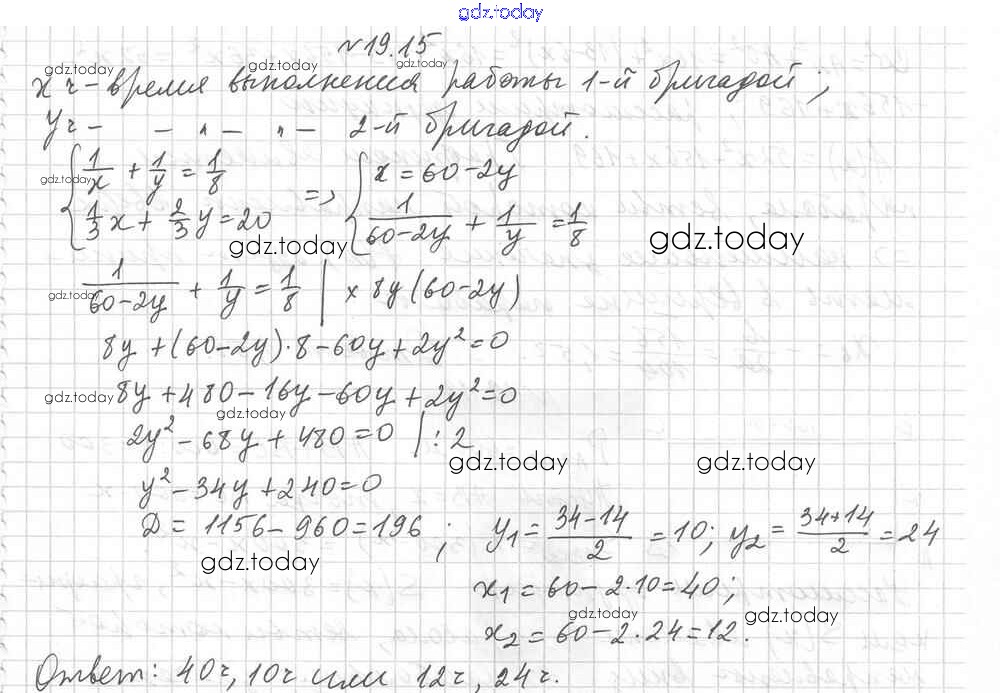 gdz.today
№19.15
gdz.today gdz.today gdz.today
x ч – время выполнения работы 1-й бригадой;
y ч – – " – " – 2-й бригадой.
{ 1/x + 1/y = 1/8 => { x = 60 - 2y
gdz.today
{ 1/3 x + 2/3 y = 20 { 1/(60-2y) + 1/y = 1/8
gdz.today gdz.today
1/(60-2y) + 1/y = 1/8 | × 8y(60-2y)
gdz.today
8y + (60-2y)·8 - 60y + 2y² = 0
gdz.today 8y + 480 - 16y - 60y + 2y² = 0
gdz.today
2y² - 68y + 480 = 0 | : 2
gdz.today gdz.today
y² - 34y + 240 = 0
D = 1156 - 960 = 196; y₁ = (34-14)/2 = 10; y₂ = (34+14)/2 = 24
gdz.today
x₁ = 60 - 2·10 = 40;
gdz.today gdz.today
x₂ = 60 - 2·24 = 12.
Ответ: 40ч, 10ч или 12ч, 24ч.